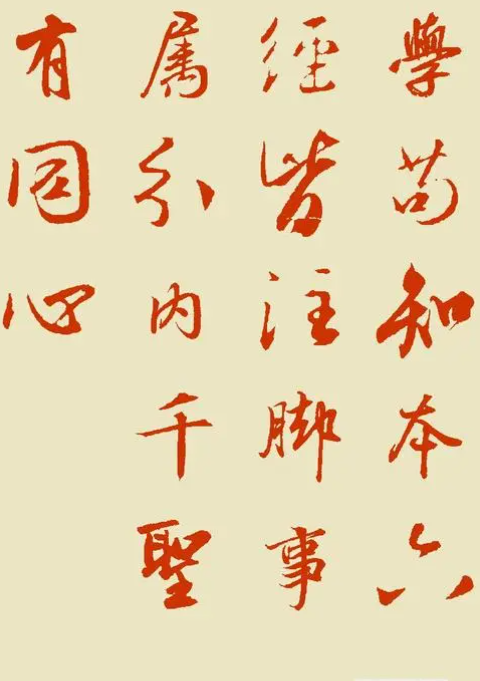 學苟知本六
經皆注脚事
属分内千聖
有同心